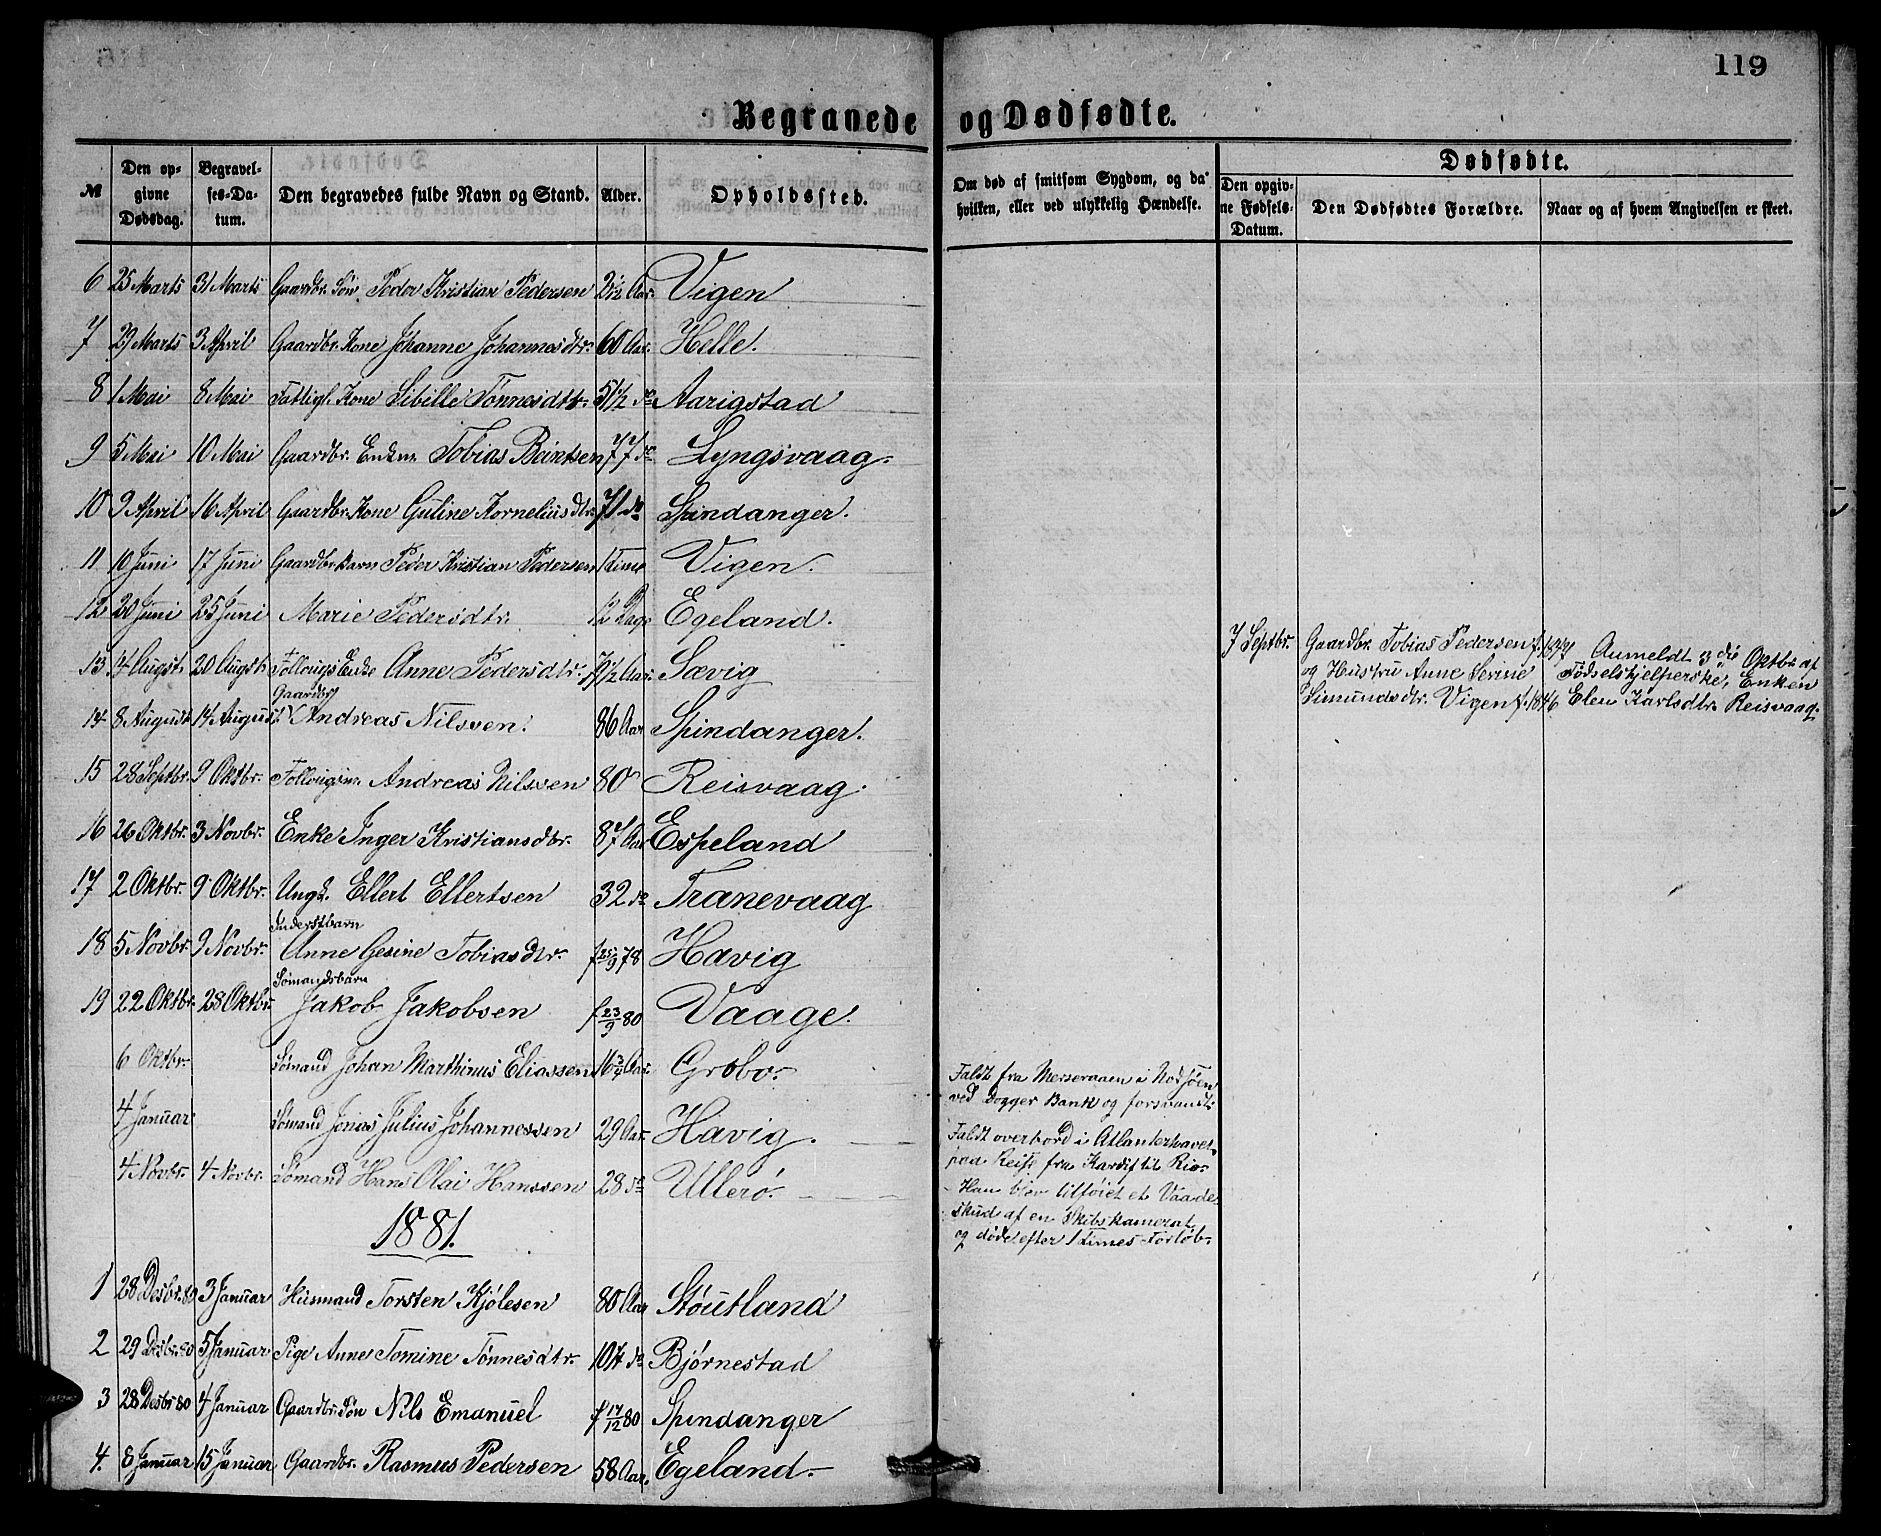 119
Begravede og Dødfødte.
№ Den opgivne Dødsdag. Begravelses-Datum. Den begravedes fulde Navn og Stand. Alder. Opholdssted. Om død af smitsom Sygdom, og da hvilken, eller ved ulykkelig Hændelse. Dødfødte. Den opgivne Fødsels-Datum. Den Dødfødtes Forældre. Naar og af hvem Angivelsen er skeet.
6 25 Marts 31 Marts Gaardbr. Søn Peder Kristian Pedersen 2 1/2 Aar. Vigen
7 29 Marts 3 April Gaardbr. Kone Johanne Johannesdtr. 60 Aar. Helle.
8 1 Mai 8 Mai Fattigl. Kone Sibille Tønnesdtr. 51 1/2 do Aarigstad
9 5 Mai 10 Mai Gaardbr. Enkm. Tobias Berntsen 77 do Lyngsvaag.
10 9 April 16 April Gaardbr. Kone Guline Korneliusdtr. 71 do Spindanger.
11 10 Juni 17 Juni Gaardbr. Barn Peder Kristian Pedersen 1 Time Vigen.
12 20 Juni 25 Juni Marie Pedersdtr. 12 Dage Egeland.
13 14 Augst. 20 Augst. Follougs Enke Anne Pedersdtr. 79 1/2 Aar. Sævig
7 Septbr. Gaardbr. Tobias Pedersen f. 1847 Anmeldt 3die Oktbr. af
og Hustru Anne Serine Fødselshjelperske, Enken
Simundsdtr. Vigen f. 1846 Elen Karlsdtr. Reisvaag.
Gaardbr
14 8 August 14 August Andreas Nilssen. 86 Aar Spindanger.
15 28 Septbr. 9 Oktbr. Follougsm. Andreas Nilssen 80 Reisvaag.
16 26 Oktbr. 3 Novbr. Enke Inger Kristiansdtr. 87 Aar Espeland
17 2 Oktbr. 9 Oktbr. Ungk. Ellert Ellertsen 32 do Tranevaag
Inderstbarn
18 5 Novbr. 9 Novbr. Anne Gesine Tobiasdtr. f 25/9 78 Havig
Sømandsbarn
19 22 Oktbr. 28 Oktbr. Jakob Jakobsen f 23/9 80 Vaage.
6 Oktbr. Sømand Johan Marthinus Eliassen 16 3/4 Aar. Grobo.
Faldt fra Merseraaen i Nordsøen
ved Dogger Bank og forsvandt.
4 Januar Sømand Jonas Julius Johannessen 29 Aar. Havig.
Faldt overbord i Atlanterhavet
paa Reise fra Kardif til Rio.
4 Novbr. 4 Novbr. Sømand Hans Olai Hanssen 28 do Ullerø.
Han blev tilføiet et Vaade-
skud af en Skibskamerat
og døde efter 1 Times Forløb.
1881.
1 28 Desbr. 80 3 Januar Husmand Torsten Kjølesen 80 Aar Støutland
2 29 Desbr. 80 5 Januar Pige Anne Tomine Tønnesdtr. 10 1/4 do Bjørnestad
3 28 Desbr 80 4 Januar Gaardbr. Søn Nils Emanuel f 17/12 80 Spindanger
4. 8 Januar 15 Januar Gaardbr. Rasmus Pedersen 58 Aar. Egeland.